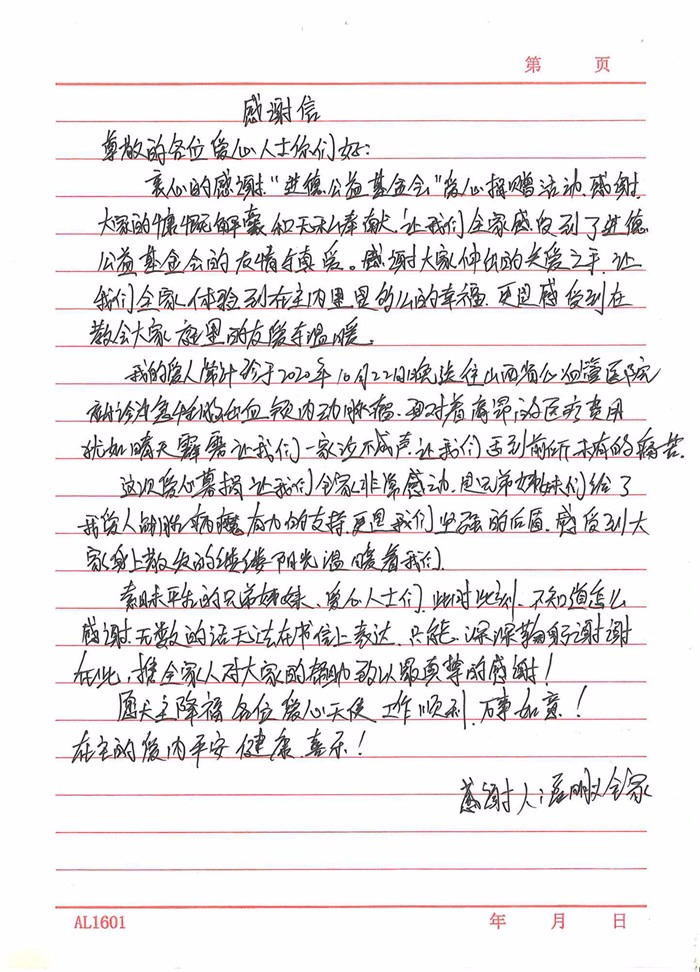 第 页
感谢信
尊敬的各位爱心人士你们好：
衷心的感谢"进德公益基金会"爱心捐赠活动.感谢
大家的慷慨解囊和无私奉献.让我们全家感受到了进德
公益基金会的友情与真爱。感谢大家伸出的关爱之手.让
我们全家体验到在主内里的幸福.更是感受到在
教会大家庭里的友爱与温暖。
我的爱人于2020年10月22日晚送往山西省心血管医院
出血颈内动脉瘤.面对着高昂的医疗费用
犹如晴天霹雳让我们一家泣不成声.让我们受到前所未有的痛苦.
这次爱心募捐让我们全家非常感动.是兄弟姊妹们给了
我爱人战胜病魔有力的支持.更是我们坚强的后盾.感受到大
家身上散发的缕缕阳光温暖着我们.
素昧平生的兄弟姊妹、爱心人士们.此时此刻.不知道怎么
感谢.无数的话无法在书信上表达.只能深深鞠躬谢谢
在此，携全家人对大家的帮助致以最真挚的感谢！
愿天主降福各位爱心天使工作顺利.万事如意！
在主的爱内平安健康.喜乐！
感谢人：全家
AL1601 年 月 日